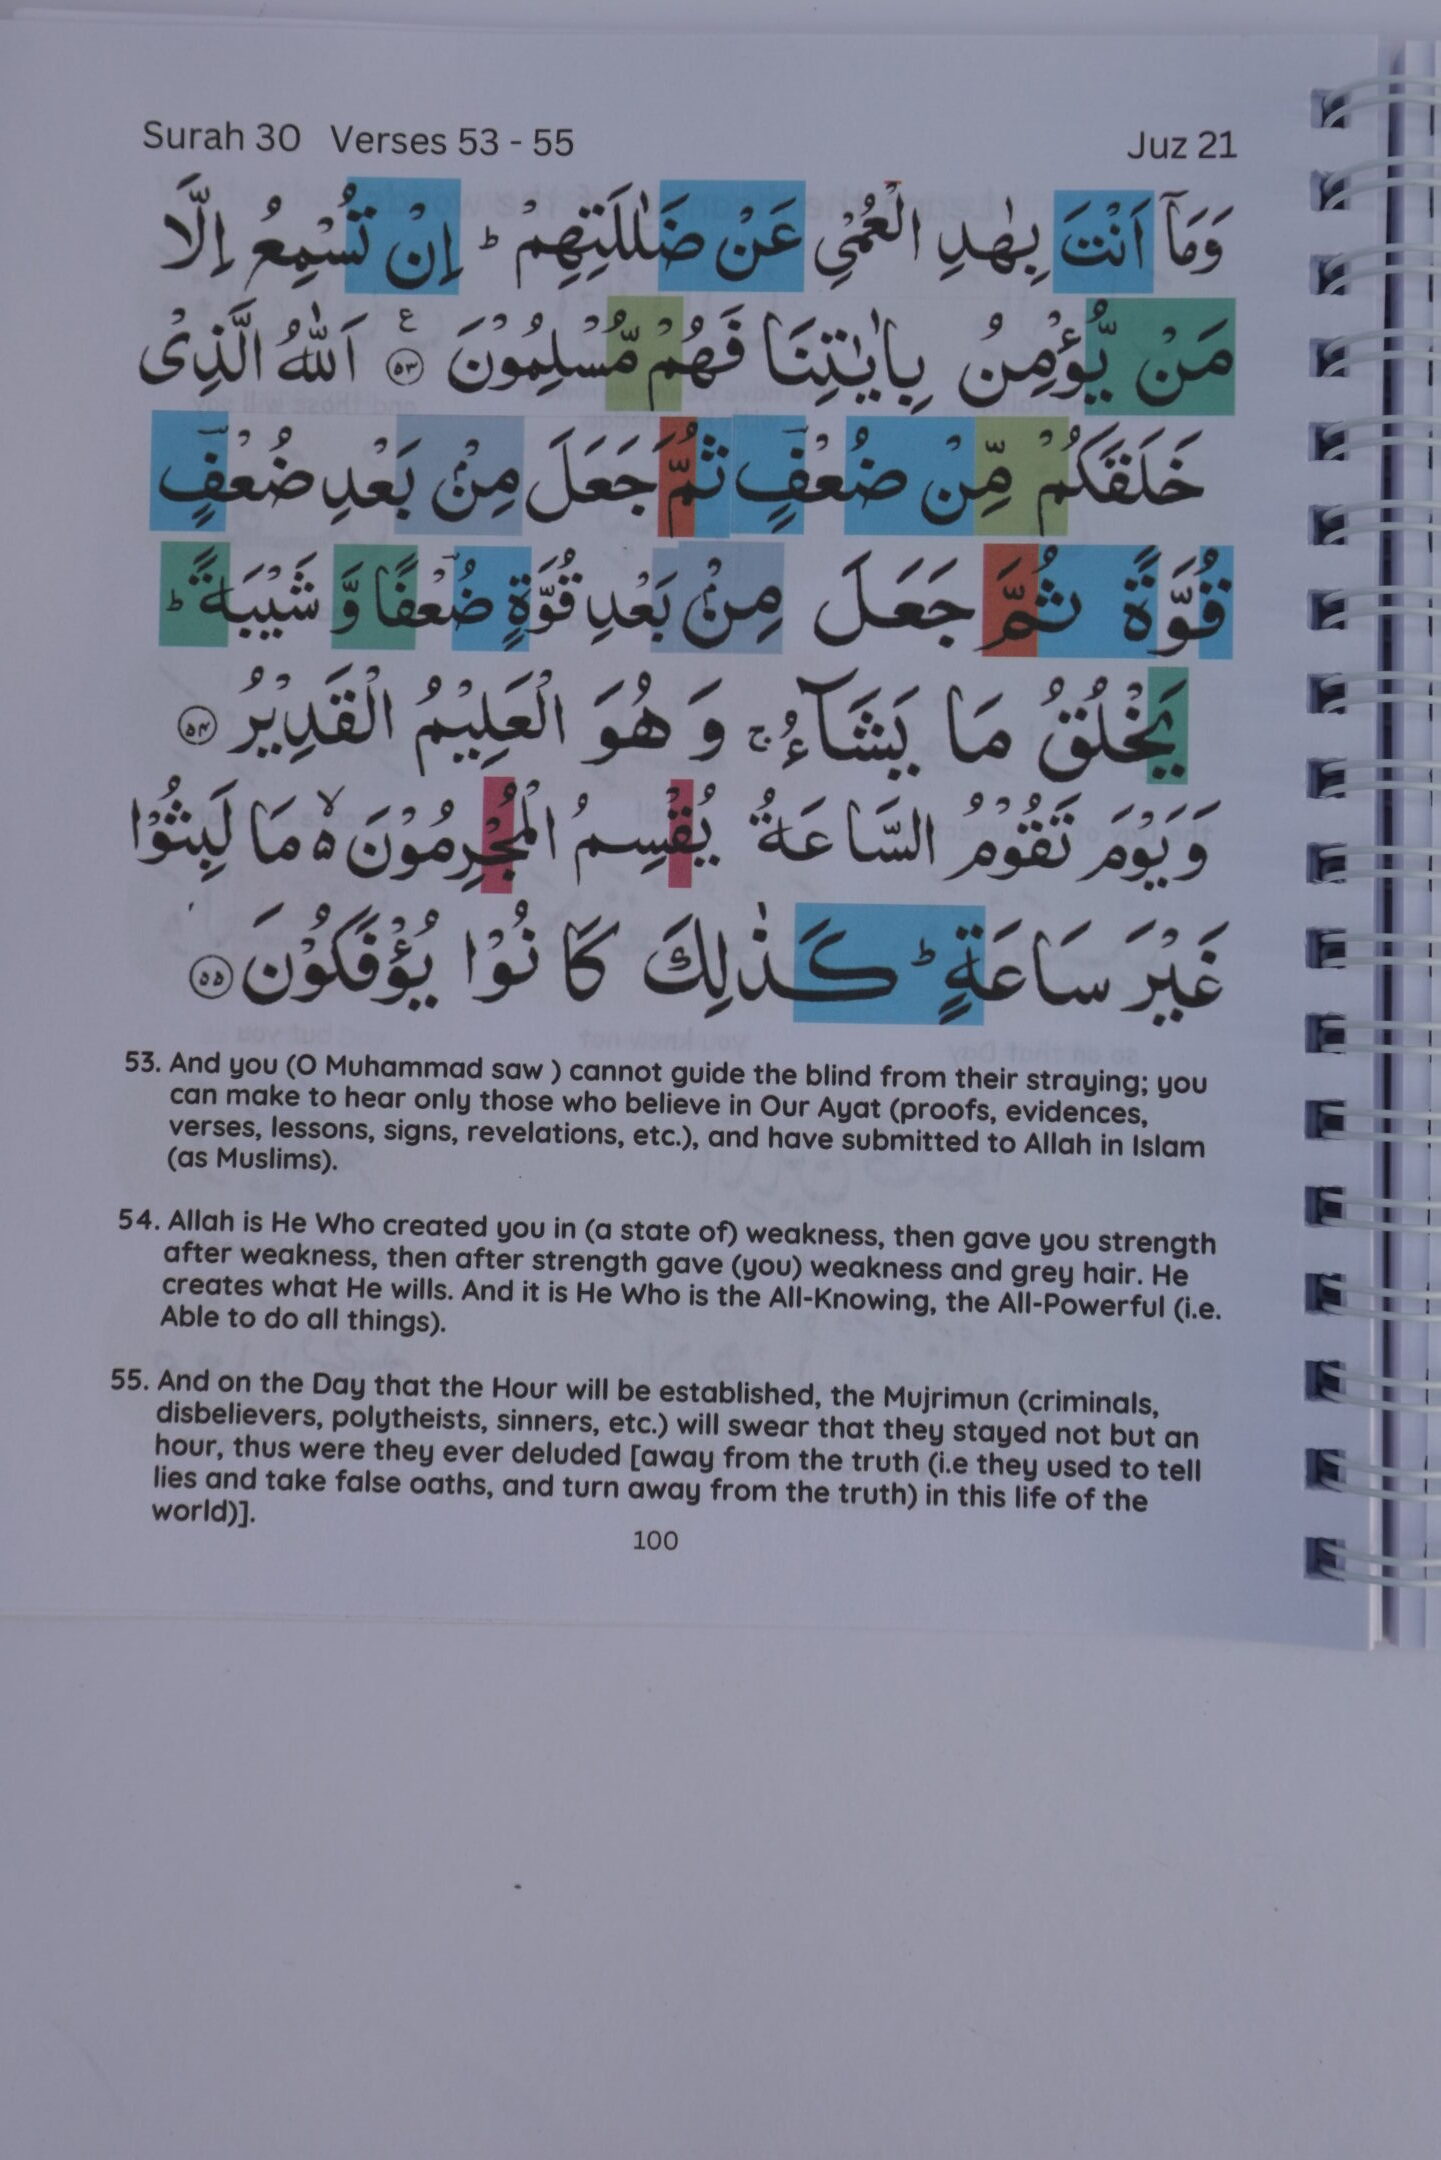 Surah 30 Verses 53 - 55
Juz 21
وَمَاۤ اَنْتَ بِهٰدِ الْعُمْيِ عَنْ ضَلٰلَتِهِمْ ؕ اِنْ تُسْمِعُ اِلَّا
مَنْ يُّؤْمِنُ بِاٰيٰتِنَا فَهُمْ مُّسْلِمُوْنَ ۝۵۳ ع اَللّٰهُ الَّذِىْ
خَلَقَكُمْ مِّنْ ضُعْفٍ ثُمَّ جَعَلَ مِنْۢ بَعْدِ ضُعْفٍ
قُوَّةً ثُمَّ جَعَلَ مِنْۢ بَعْدِ قُوَّةٍ ضُعْفًا وَّ شَيْبَةً ؕ
يَخْلُقُ مَا يَشَآءُ ۚ وَ هُوَ الْعَلِيْمُ الْقَدِيْرُ ۝۵۴
وَيَوْمَ تَقُوْمُ السَّاعَةُ يُقْسِمُ الْمُجْرِمُوْنَ ۙ۬ مَا لَبِثُوْا
غَيْرَ سَاعَةٍ ؕ كَذٰلِكَ كَانُوْا يُؤْفَكُوْنَ ۝۵۵
53. And you (O Muhammad saw ) cannot guide the blind from their straying; you
can make to hear only those who believe in Our Ayat (proofs, evidences,
verses, lessons, signs, revelations, etc.), and have submitted to Allah in Islam
(as Muslims).
54. Allah is He Who created you in (a state of) weakness, then gave you strength
after weakness, then after strength gave (you) weakness and grey hair. He
creates what He wills. And it is He Who is the All-Knowing, the All-Powerful (i.e.
Able to do all things).
55. And on the Day that the Hour will be established, the Mujrimun (criminals,
disbelievers, polytheists, sinners, etc.) will swear that they stayed not but an
hour, thus were they ever deluded [away from the truth (i.e they used to tell
lies and take false oaths, and turn away from the truth) in this life of the
world)].
100